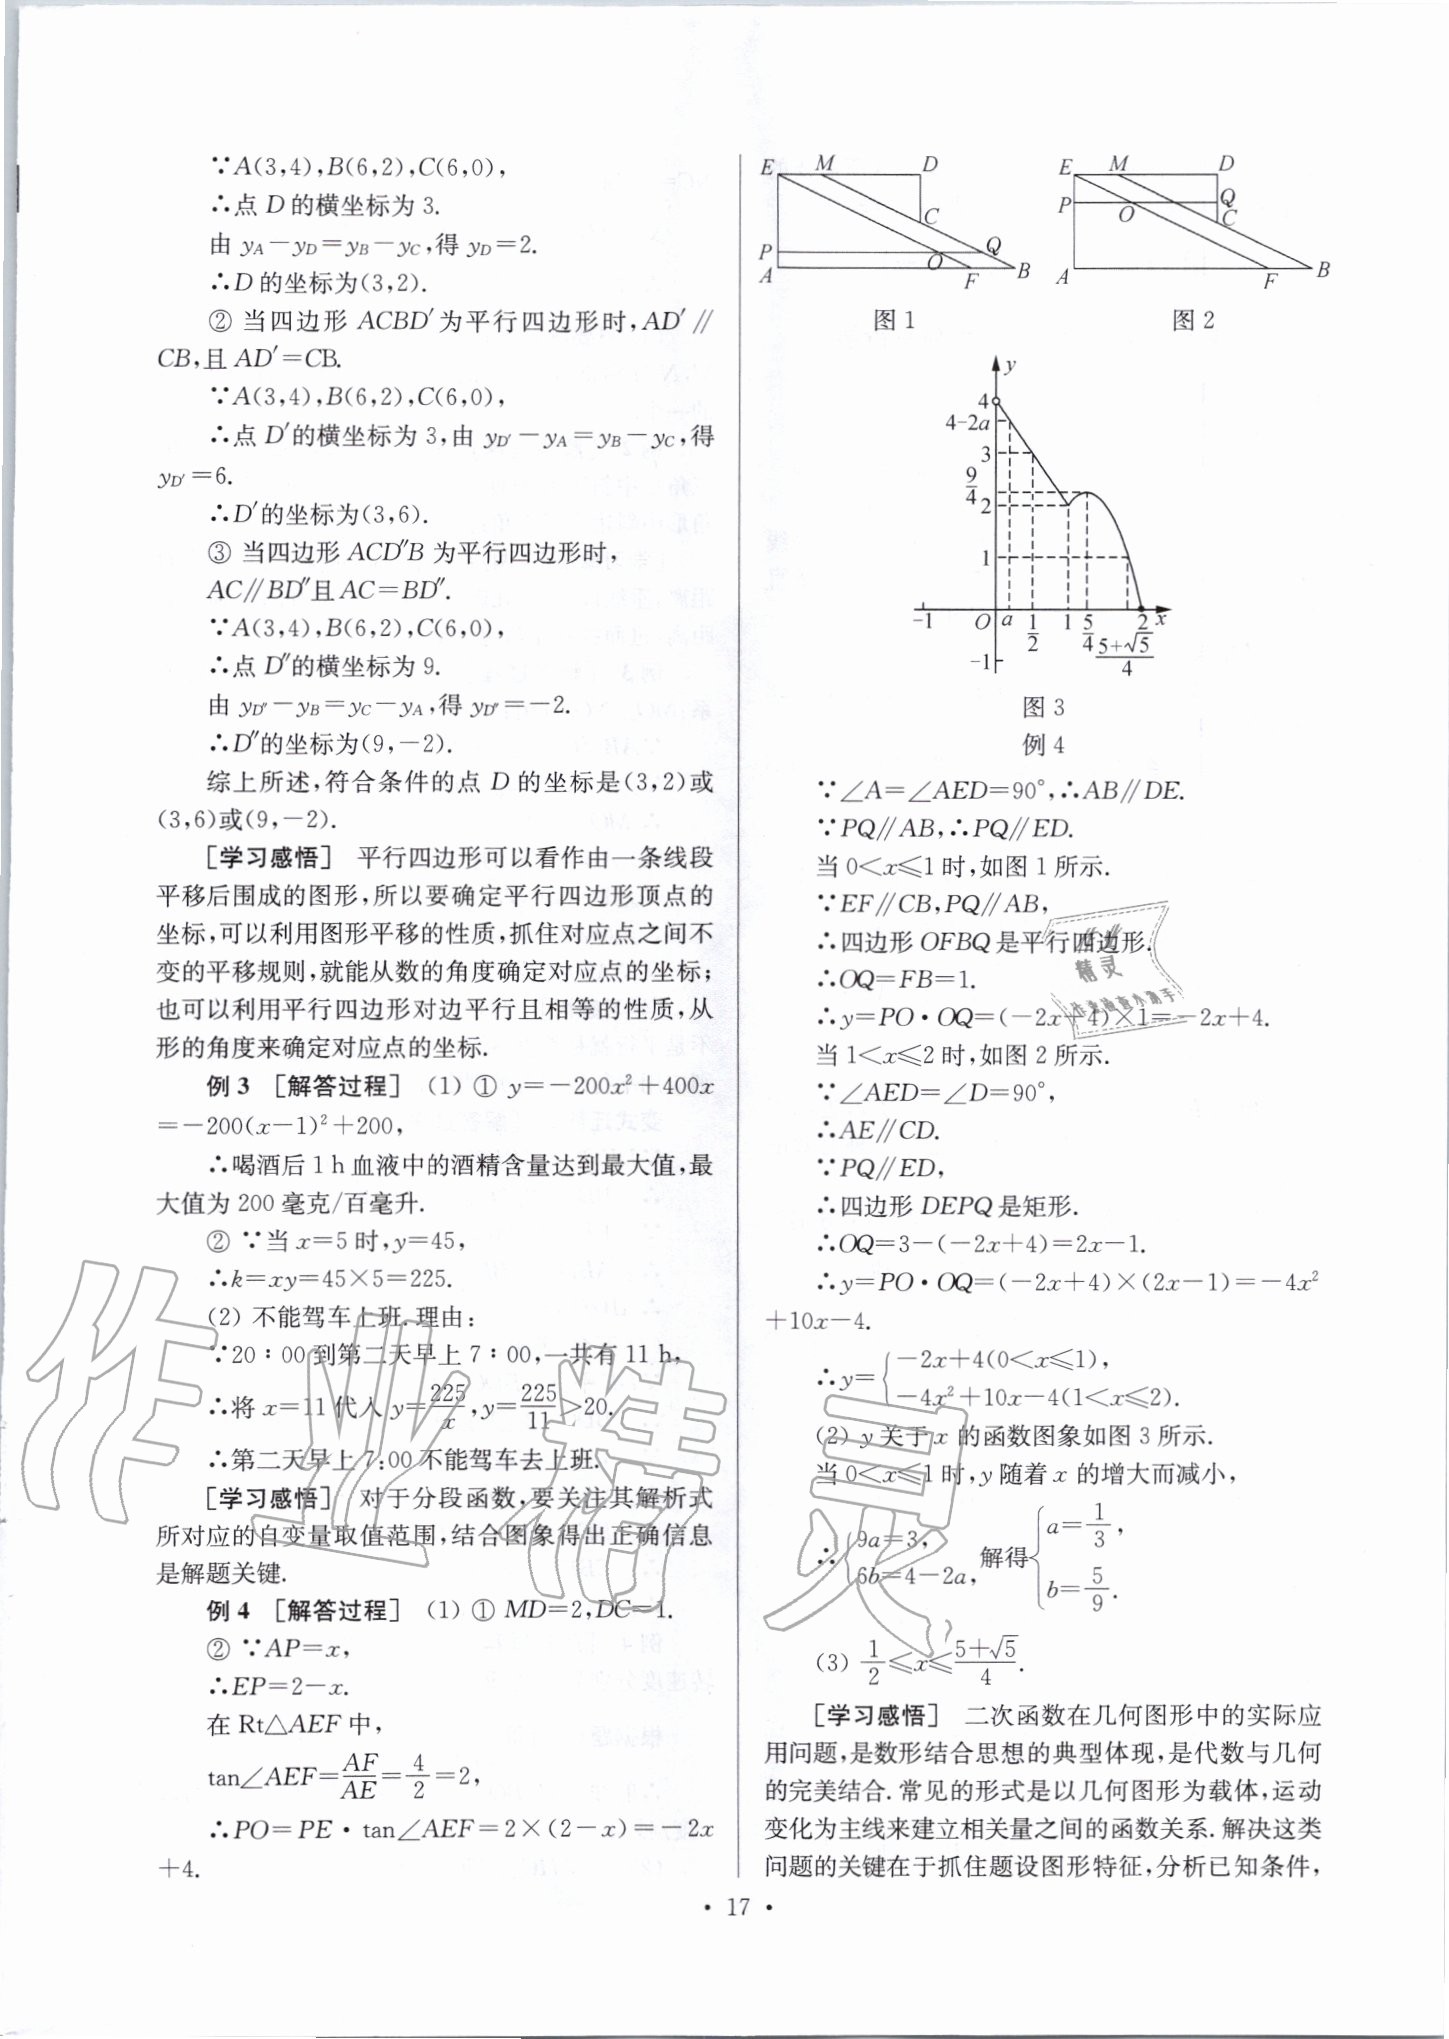 ∵A(3,4),B(6,2),C(6,0),
∴点 D 的横坐标为 3.
由 y_A－y_D＝y_B－y_C,得 y_D＝2.
∴D 的坐标为(3,2).
② 当四边形 ACBD′为平行四边形时,AD′∥
CB,且 AD′＝CB.
∵A(3,4),B(6,2),C(6,0),
∴点 D′的横坐标为 3,由 y_D′－y_A＝y_B－y_C,得
y_D′＝6.
∴D′的坐标为(3,6).
③ 当四边形 ACD″B 为平行四边形时,
AC∥BD″且 AC＝BD″.
∵A(3,4),B(6,2),C(6,0),
∴点 D″的横坐标为 9.
由 y_D″－y_B＝y_C－y_A,得 y_D″＝－2.
∴D″的坐标为(9,－2).
综上所述,符合条件的点 D 的坐标是(3,2)或
(3,6)或(9,－2).
[学习感悟] 平行四边形可以看作由一条线段
平移后围成的图形,所以要确定平行四边形顶点的
坐标,可以利用图形平移的性质,抓住对应点之间不
变的平移规则,就能从数的角度确定对应点的坐标;
也可以利用平行四边形对边平行且相等的性质,从
形的角度来确定对应点的坐标.
例 3 [解答过程] (1) ① y＝－200x²＋400x
＝－200(x－1)²＋200,
∴喝酒后 1 h 血液中的酒精含量达到最大值,最
大值为 200 毫克/百毫升.
② ∵当 x＝5 时,y＝45,
∴k＝xy＝45×5＝225.
(2) 不能驾车上班.理由:
∵20∶00 到第二天早上 7∶00,一共有 11 h,
∴将 x＝11 代入 y＝225/x,y＝225/11＞20.
∴第二天早上 7:00 不能驾车去上班.
[学习感悟] 对于分段函数,要关注其解析式
所对应的自变量取值范围,结合图象得出正确信息
是解题关键.
例 4 [解答过程] (1) ① MD＝2,DC＝1.
② ∵AP＝x,
∴EP＝2－x.
在 Rt△AEF 中,
tan∠AEF＝AF/AE＝4/2＝2,
∴PO＝PE·tan∠AEF＝2×(2－x)＝－2x
＋4.
E M D
C
P Q
A O F B
图 1
E M D
P O Q
C
A F B
图 2
y
4
4-2a
3
9/4
2
1
-1 O a 1/2 1 5/4 2 x
(5+√5)/4
-1
图 3
例 4
∵∠A＝∠AED＝90°,∴AB∥DE.
∵PQ∥AB,∴PQ∥ED.
当 0＜x≤1 时,如图 1 所示.
∵EF∥CB,PQ∥AB,
∴四边形 OFBQ 是平行四边形.
∴OQ＝FB＝1.
∴y＝PO·OQ＝(－2x＋4)×1＝－2x＋4.
当 1＜x≤2 时,如图 2 所示.
∵∠AED＝∠D＝90°,
∴AE∥CD.
∵PQ∥ED,
∴四边形 DEPQ 是矩形.
∴OQ＝3－(－2x＋4)＝2x－1.
∴y＝PO·OQ＝(－2x＋4)×(2x－1)＝－4x²
＋10x－4.
∴y＝{－2x＋4(0＜x≤1),
－4x²＋10x－4(1＜x≤2).
(2) y 关于 x 的函数图象如图 3 所示.
当 0＜x≤1 时,y 随着 x 的增大而减小,
∴{9a＝3, 6b＝4－2a, 解得{a＝1/3, b＝5/9.
(3) 1/2≤x≤(5＋√5)/4.
[学习感悟] 二次函数在几何图形中的实际应
用问题,是数形结合思想的典型体现,是代数与几何
的完美结合.常见的形式是以几何图形为载体,运动
变化为主线来建立相关量之间的函数关系.解决这类
问题的关键在于抓住题设图形特征,分析已知条件,
· 17 ·
作业精灵